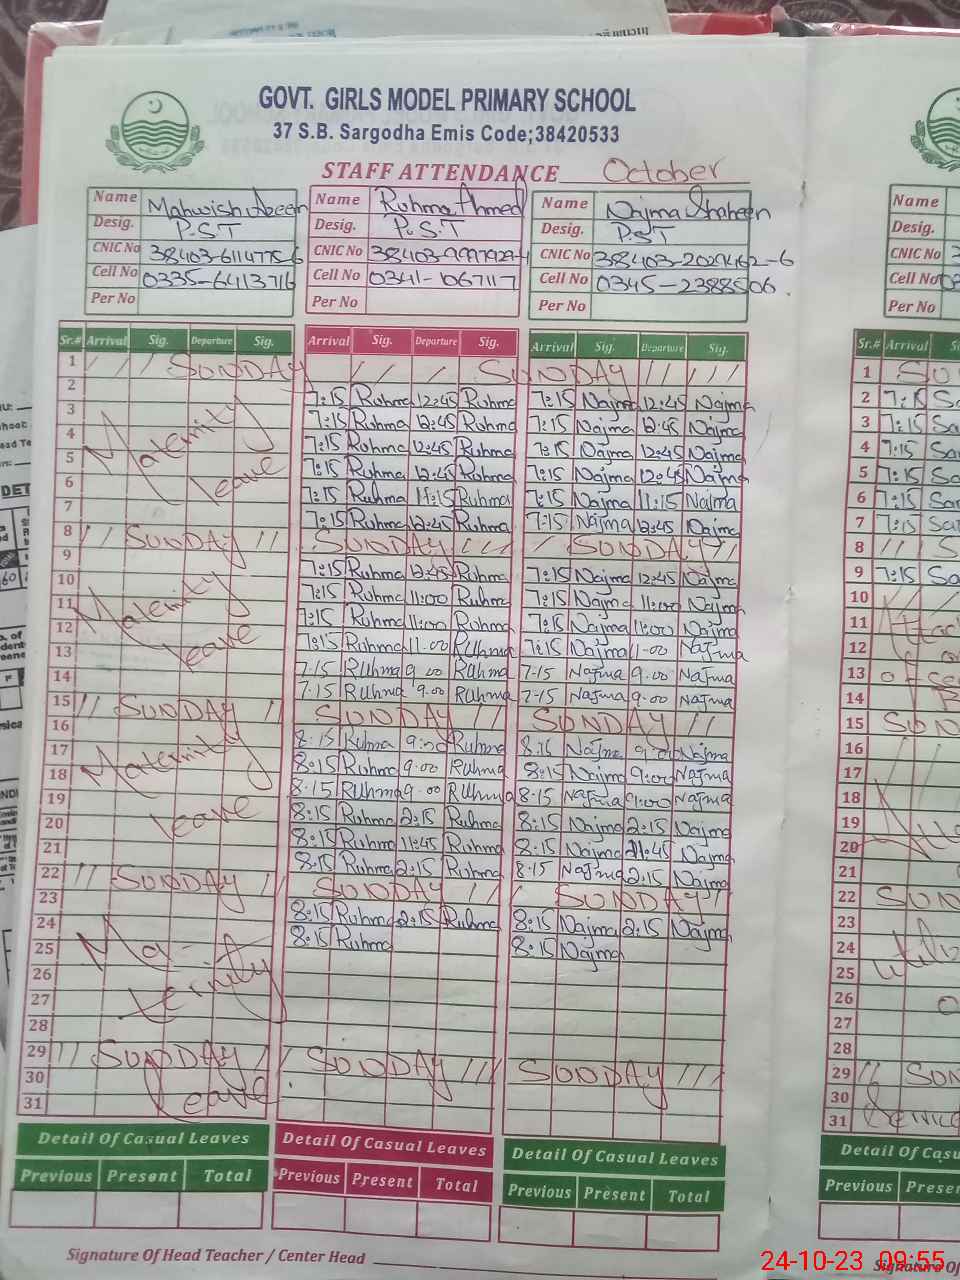 GOVT. GIRLS MODEL PRIMARY SCHOOL
37 S.B. Sargodha Emis Code;38420533
STAFF ATTENDANCE October
Name Mahwish Abeer Name Ruhma Ahmed Name Najma Shaheen
Desig. P.S.T Desig. P.S.T Desig. P.S.T
CNIC No CNIC No CNIC No 38403-2029462-6
Cell No 0335-6413716 Cell No 0341-1067117 Cell No 0345-2388506
Per No Per No Per No
Sr.# Arrival Sig. Departure Sig. Arrival Sig. Departure Sig. Arrival Sig. Departure Sig. Sr.# Arrival
1 SUNDAY SUNDAY 1
2 7:15 Ruhma 12:45 Ruhma 7:15 Najma 12:45 Najma 2 7:15
3 Maternity 7:15 Ruhma 12:45 Ruhma 7:15 Najma 12:45 Najma 3 7:15
4 7:15 Ruhma 12:45 Ruhma 7:15 Najma 12:45 Najma 4 7:15
5 leave 7:15 Ruhma 12:45 Ruhma 7:15 Najma 12:45 Najma 5 7:15
6 7:15 Ruhma 11:15 Ruhma 7:15 Najma 11:15 Najma 6 7:15
7 7:15 Ruhma 12:45 Ruhma 7:15 Najma 12:45 Najma 7 7:15
8 SUNDAY SUNDAY SUNDAY 8
9 7:15 Ruhma 12:45 Ruhma 7:15 Najma 12:45 Najma 9 7:15
10 Maternity 7:15 Ruhma 11:00 Ruhma 7:15 Najma 11:00 Najma 10
11 7:15 Ruhma 11:00 Ruhma 7:15 Najma 11:00 Najma 11
12 leave 7:15 Ruhma 11.00 Ruhma 7:15 Najma 11-00 Najma 12
13 7.15 Ruhma 9.00 Ruhma 7-15 Najma 9.00 Najma 13
14 7.15 Ruhma 9.00 Ruhma 7-15 Najma 9.00 Najma 14
15 SUNDAY SUNDAY SUNDAY 15
16 8:15 Ruhma 9:00 Ruhma 8:15 Najma 9:00 Najma 16
17 Maternity 8:15 Ruhma 9.00 Ruhma 8:15 Najma 9:00 Najma 17
18 8.15 Ruhma 9.00 Ruhma 8-15 Najma 9:00 Najma 18
19 leave 8:15 Ruhma 2:15 Ruhma 8:15 Najma 2:15 Najma 19
20 8:15 Ruhma 11:45 Ruhma 8:15 Najma 11:45 Najma 20
21 8:15 Ruhma 2:15 Ruhma 8:15 Najma 2:15 Najma 21
22 SUNDAY SUNDAY SUNDAY 22
23 8:15 Ruhma 2:15 Ruhma 8:15 Najma 2:15 Najma 23
24 Ma- 8:15 Ruhma 8:15 Najma 24
25 25
26 ternity 26
27 27
28 28
29 SUNDAY SUNDAY SUNDAY 29
30 Leave 30
31 31
Detail Of Casual Leaves Detail Of Casual Leaves Detail Of Casual Leaves
Previous Present Total Previous Present Total Previous Present Total Previous
Signature Of Head Teacher / Center Head
24-10-23 09:55